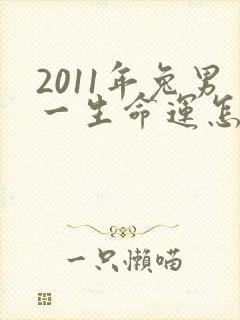 2011年兔男
一生命运怎
一只懒喵